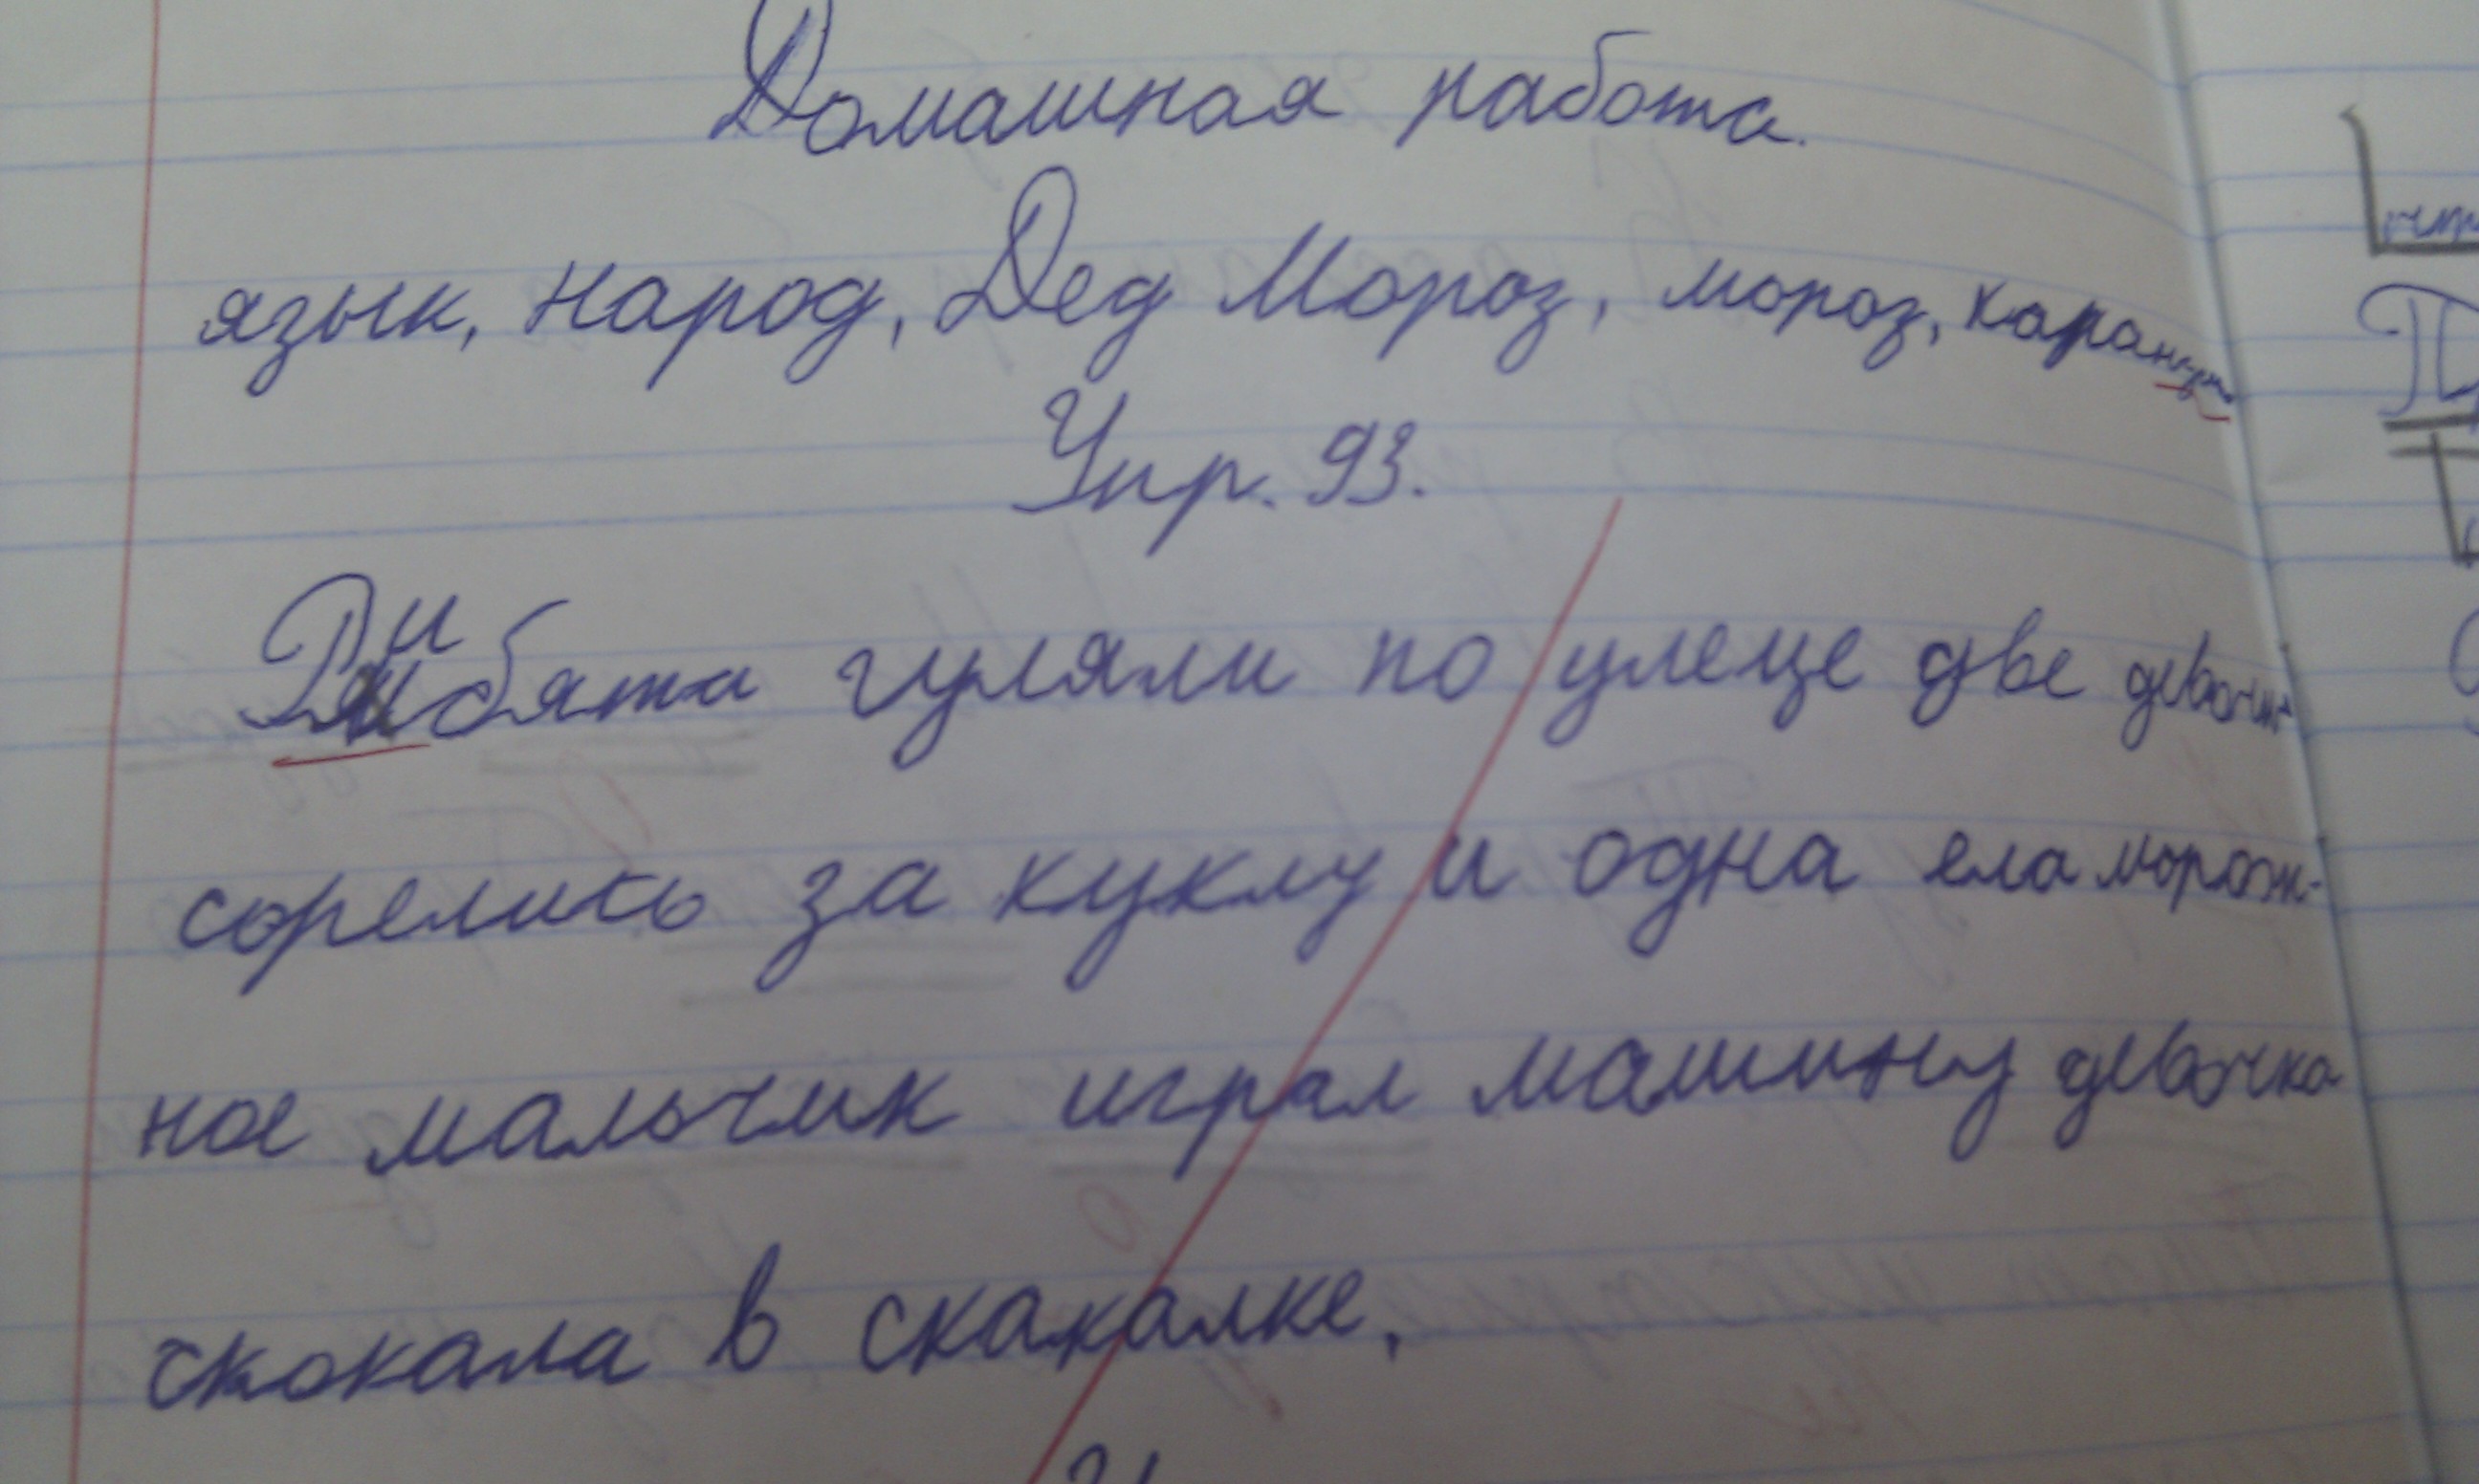 Домашная работа.
язык, народ, Дед Мороз, мороз,
Упр. 93.
Рибята гуляли по улеце две девочки
сорелись за куклу и одна ела морож-
ное мальчик играл машину девочка
скокала в скакалке.